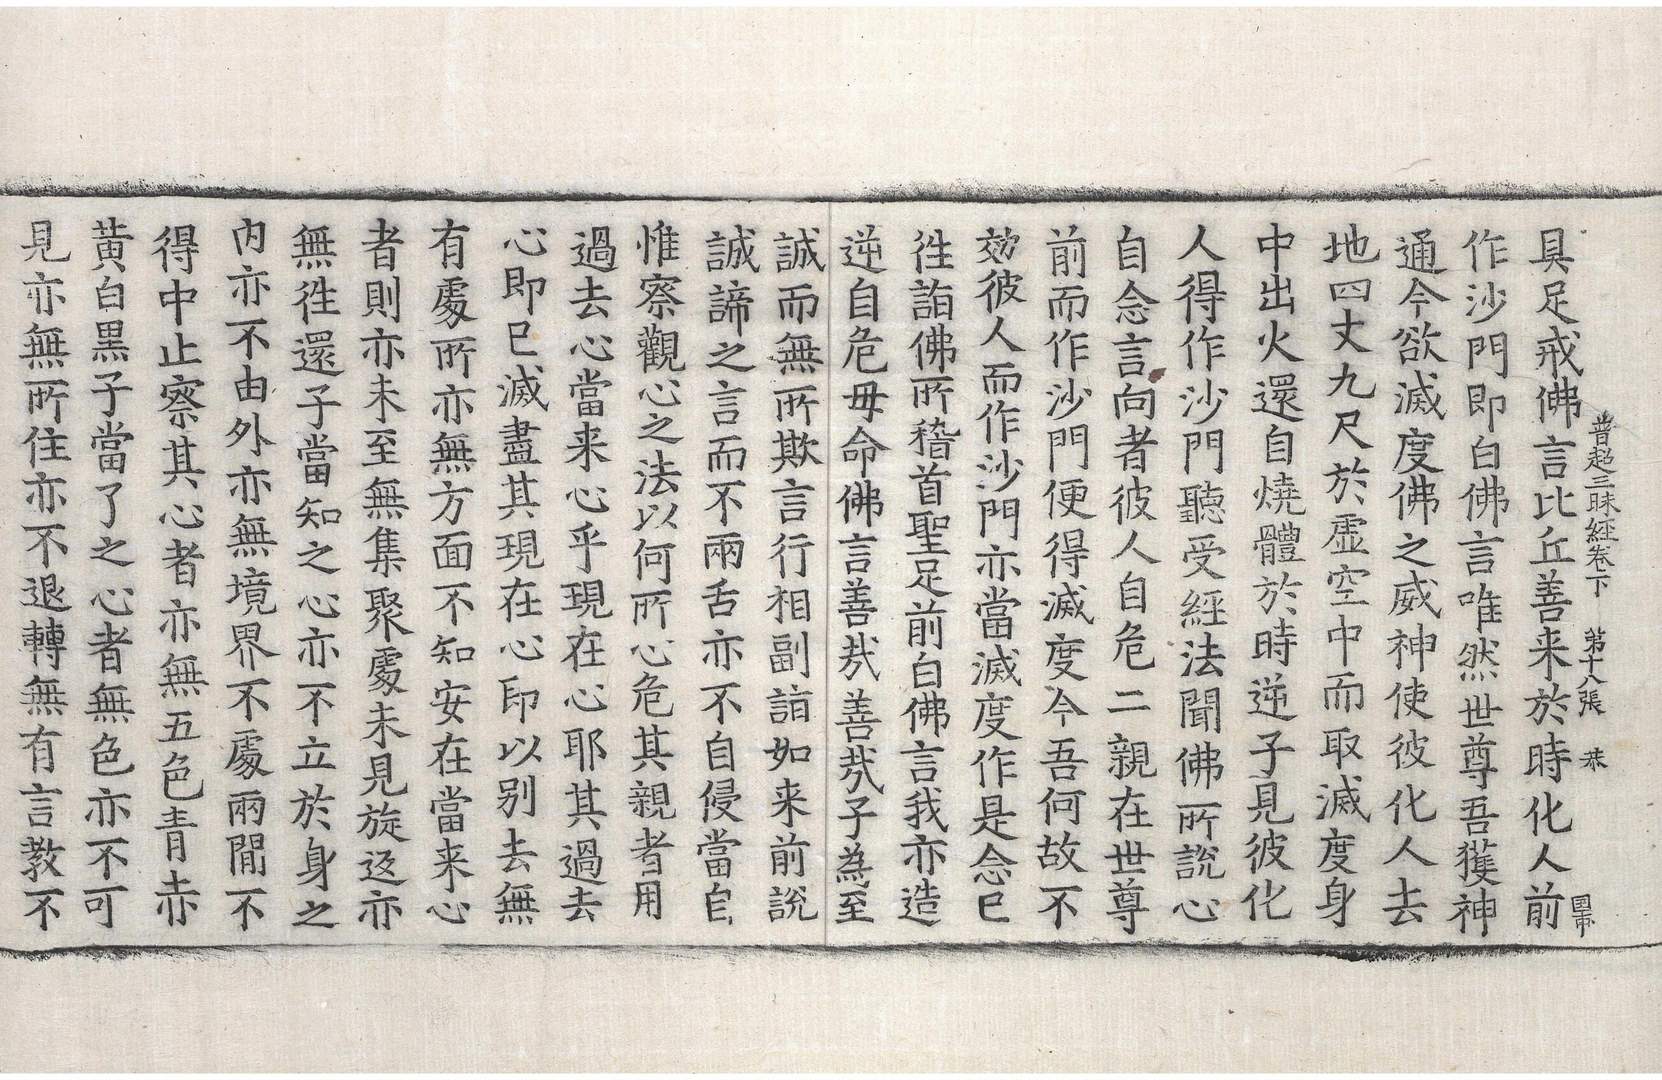 普超三昧經卷下　第十八張　恭
具足戒佛言比丘善来於時化人前
作沙門即白佛言唯然世尊吾獲神
通今欲滅度佛之威神使彼化人去
地四丈九尺於虛空中而取滅度身
中出火還自燒體於時逆子見彼化
人得作沙門聽受經法聞佛所說心
自念言向者彼人自危二親在世尊
前而作沙門便得滅度今吾何故不
効彼人而作沙門亦當滅度作是念已
徃詣佛所稽首聖足前白佛言我亦造
逆自危毋命佛言善㢤善㢤子為至
誠而無所欺言行相副詣如来前說
誠諦之言而不兩舌亦不自侵當自
惟察觀心之法以何所心危其親者用
過去心當来心乎現在心耶其過去
心即已滅盡其現在心印以别去無
有處所亦無方面不知安在當来心
者則亦未至無集聚處未見旋返亦
無徃還子當知之心亦不立於身之
內亦不由外亦無境界不處兩閒不
得中止察其心者亦無五色青赤
黄白黒子當了之心者無色亦不可
見亦無所住亦不退轉無有言教不